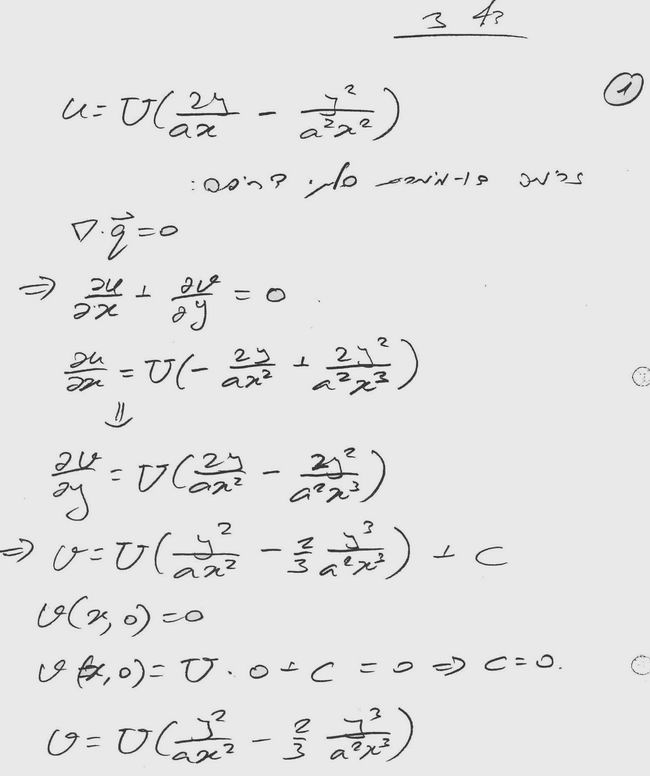 3
①
u = U(2y/ax - y²/a²x²)
∇·q⃗ = 0
⇒ ∂u/∂x + ∂v/∂y = 0
∂u/∂x = U(- 2y/ax² + 2y²/a²x³)
⇓
∂v/∂y = U(2y/ax² - 2y²/a²x³)
⇒ v = U(y²/ax² - 2/3 y³/a²x³) + C
v(x,0) = 0
v(x,0) = U·0 + C = 0 ⇒ C = 0.
v = U(y²/ax² - 2/3 y³/a²x³)